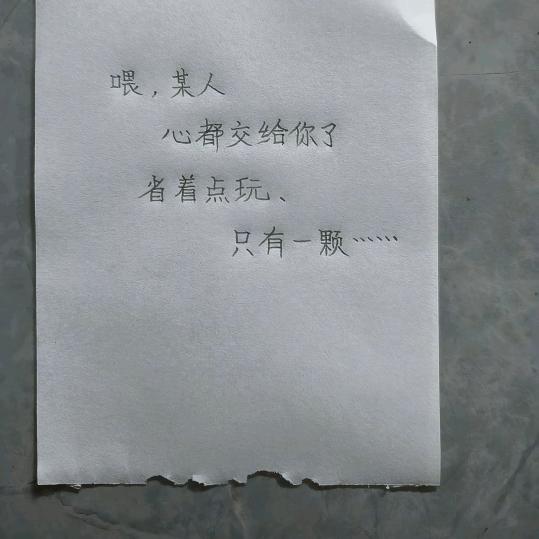 喂，某人
心都交给你了
省着点玩、
只有一颗……